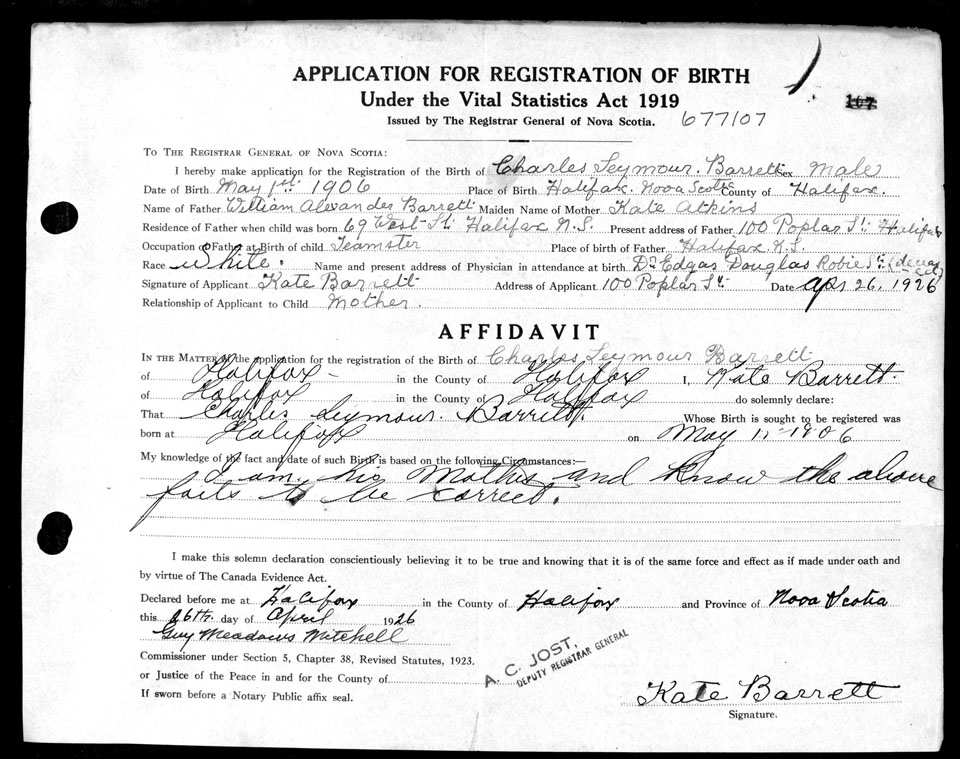 APPLICATION FOR REGISTRATION OF BIRTH
Under the Vital Statistics Act 1919
107
Issued by The Registrar General of Nova Scotia. 677107
TO THE REGISTRAR GENERAL OF NOVA SCOTIA:
I hereby make application for the Registration of the Birth of Charles Seymour. Barrett Sex Male
Date of Birth May 1st 1906 Place of Birth Halifax. Nova Scotia County of Halifax.
Name of Father William Alexander Barrett Maiden Name of Mother Kate Atkins
Residence of Father when child was born 69 West St. Halifax N.S. Present address of Father 100 Poplar St. Halifax
Occupation of Father at Birth of child Teamster Place of birth of Father Halifax N.S.
Race White. Name and present address of Physician in attendance at birth Dr Edgar Douglas Robie St. (deceased)
Signature of Applicant Kate Barrett Address of Applicant 100 Poplar St. Date Apr 26, 1926
Relationship of Applicant to Child Mother.
AFFIDAVIT
IN THE MATTER of the application for the registration of the Birth of Charles Seymour Barrett
of Halifax in the County of Halifax I, Kate Barrett.
of Halifax in the County of Halifax do solemnly declare:
That Charles Seymour. Barrett. Whose Birth is sought to be registered was
born at Halifax on May 1st 1906
My knowledge of the fact and date of such Birth is based on the following Circumstances:—
I am his Mother and know the above
facts to be correct.
I make this solemn declaration conscientiously believing it to be true and knowing that it is of the same force and effect as if made under oath and
by virtue of The Canada Evidence Act.
Declared before me at Halifax in the County of Halifax and Province of Nova Scotia
this 26th. day of April 1926
Guy Meadows Mitchell
Commissioner under Section 5, Chapter 38, Revised Statutes, 1923.
A. C. JOST,
DEPUTY REGISTRAR GENERAL
or Justice of the Peace in and for the County of
If sworn before a Notary Public affix seal.
Kate Barrett
Signature.